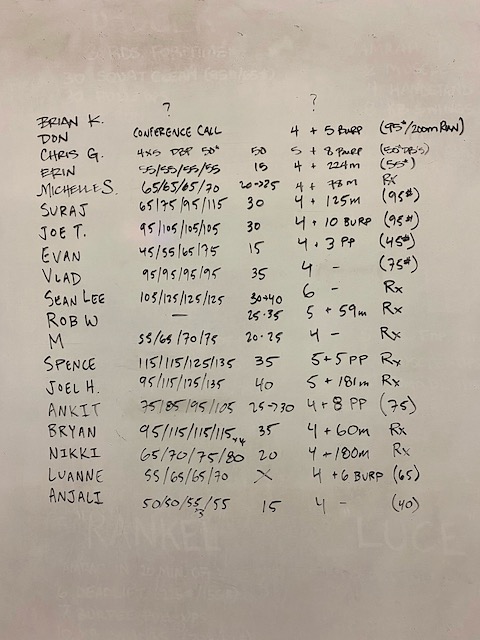 ? ?
BRIAN K. 4 + 5 BURP (95#/200m RUN)
DON CONFERENCE CALL
CHRIS G. 4x5 DBP 50# 50 5 + 8 BURP (50# DB'S)
ERIN 55/55/55/55 15 4 + 224m (55#)
MICHELLE S. 65/65/65/70 20->25 4 + 78m Rx
SURAJ 65/75/95/115 30 4 + 125m (95#)
JOE T. 95/105/105/105 30 4 + 10 BURP (95#)
EVAN 45/55/65/75 15 4 + 3 PP (45#)
VLAD 95/95/95/95 35 4 - (75#)
SEAN LEE 105/125/125/125 30->40 6 - Rx
ROB W — 25-35 5 + 59m Rx
M 55/65/70/75 20-25 4 - Rx
SPENCE 115/115/125/135 35 5+5 PP Rx
JOEL H. 95/115/125/135 40 5 + 181m Rx
ANKIT 75/85/95/105 25->30 4+8 PP (75)
BRYAN 95/115/115/115x4 35 4 + 60m Rx
NIKKI 65/70/75/80 20 4 + 180m Rx
LUANNE 55/65/65/70 X 4 + 6 BURP (65)
ANJALI 50/50/55/55 3 15 4 - (40)
RANKEL LUCE